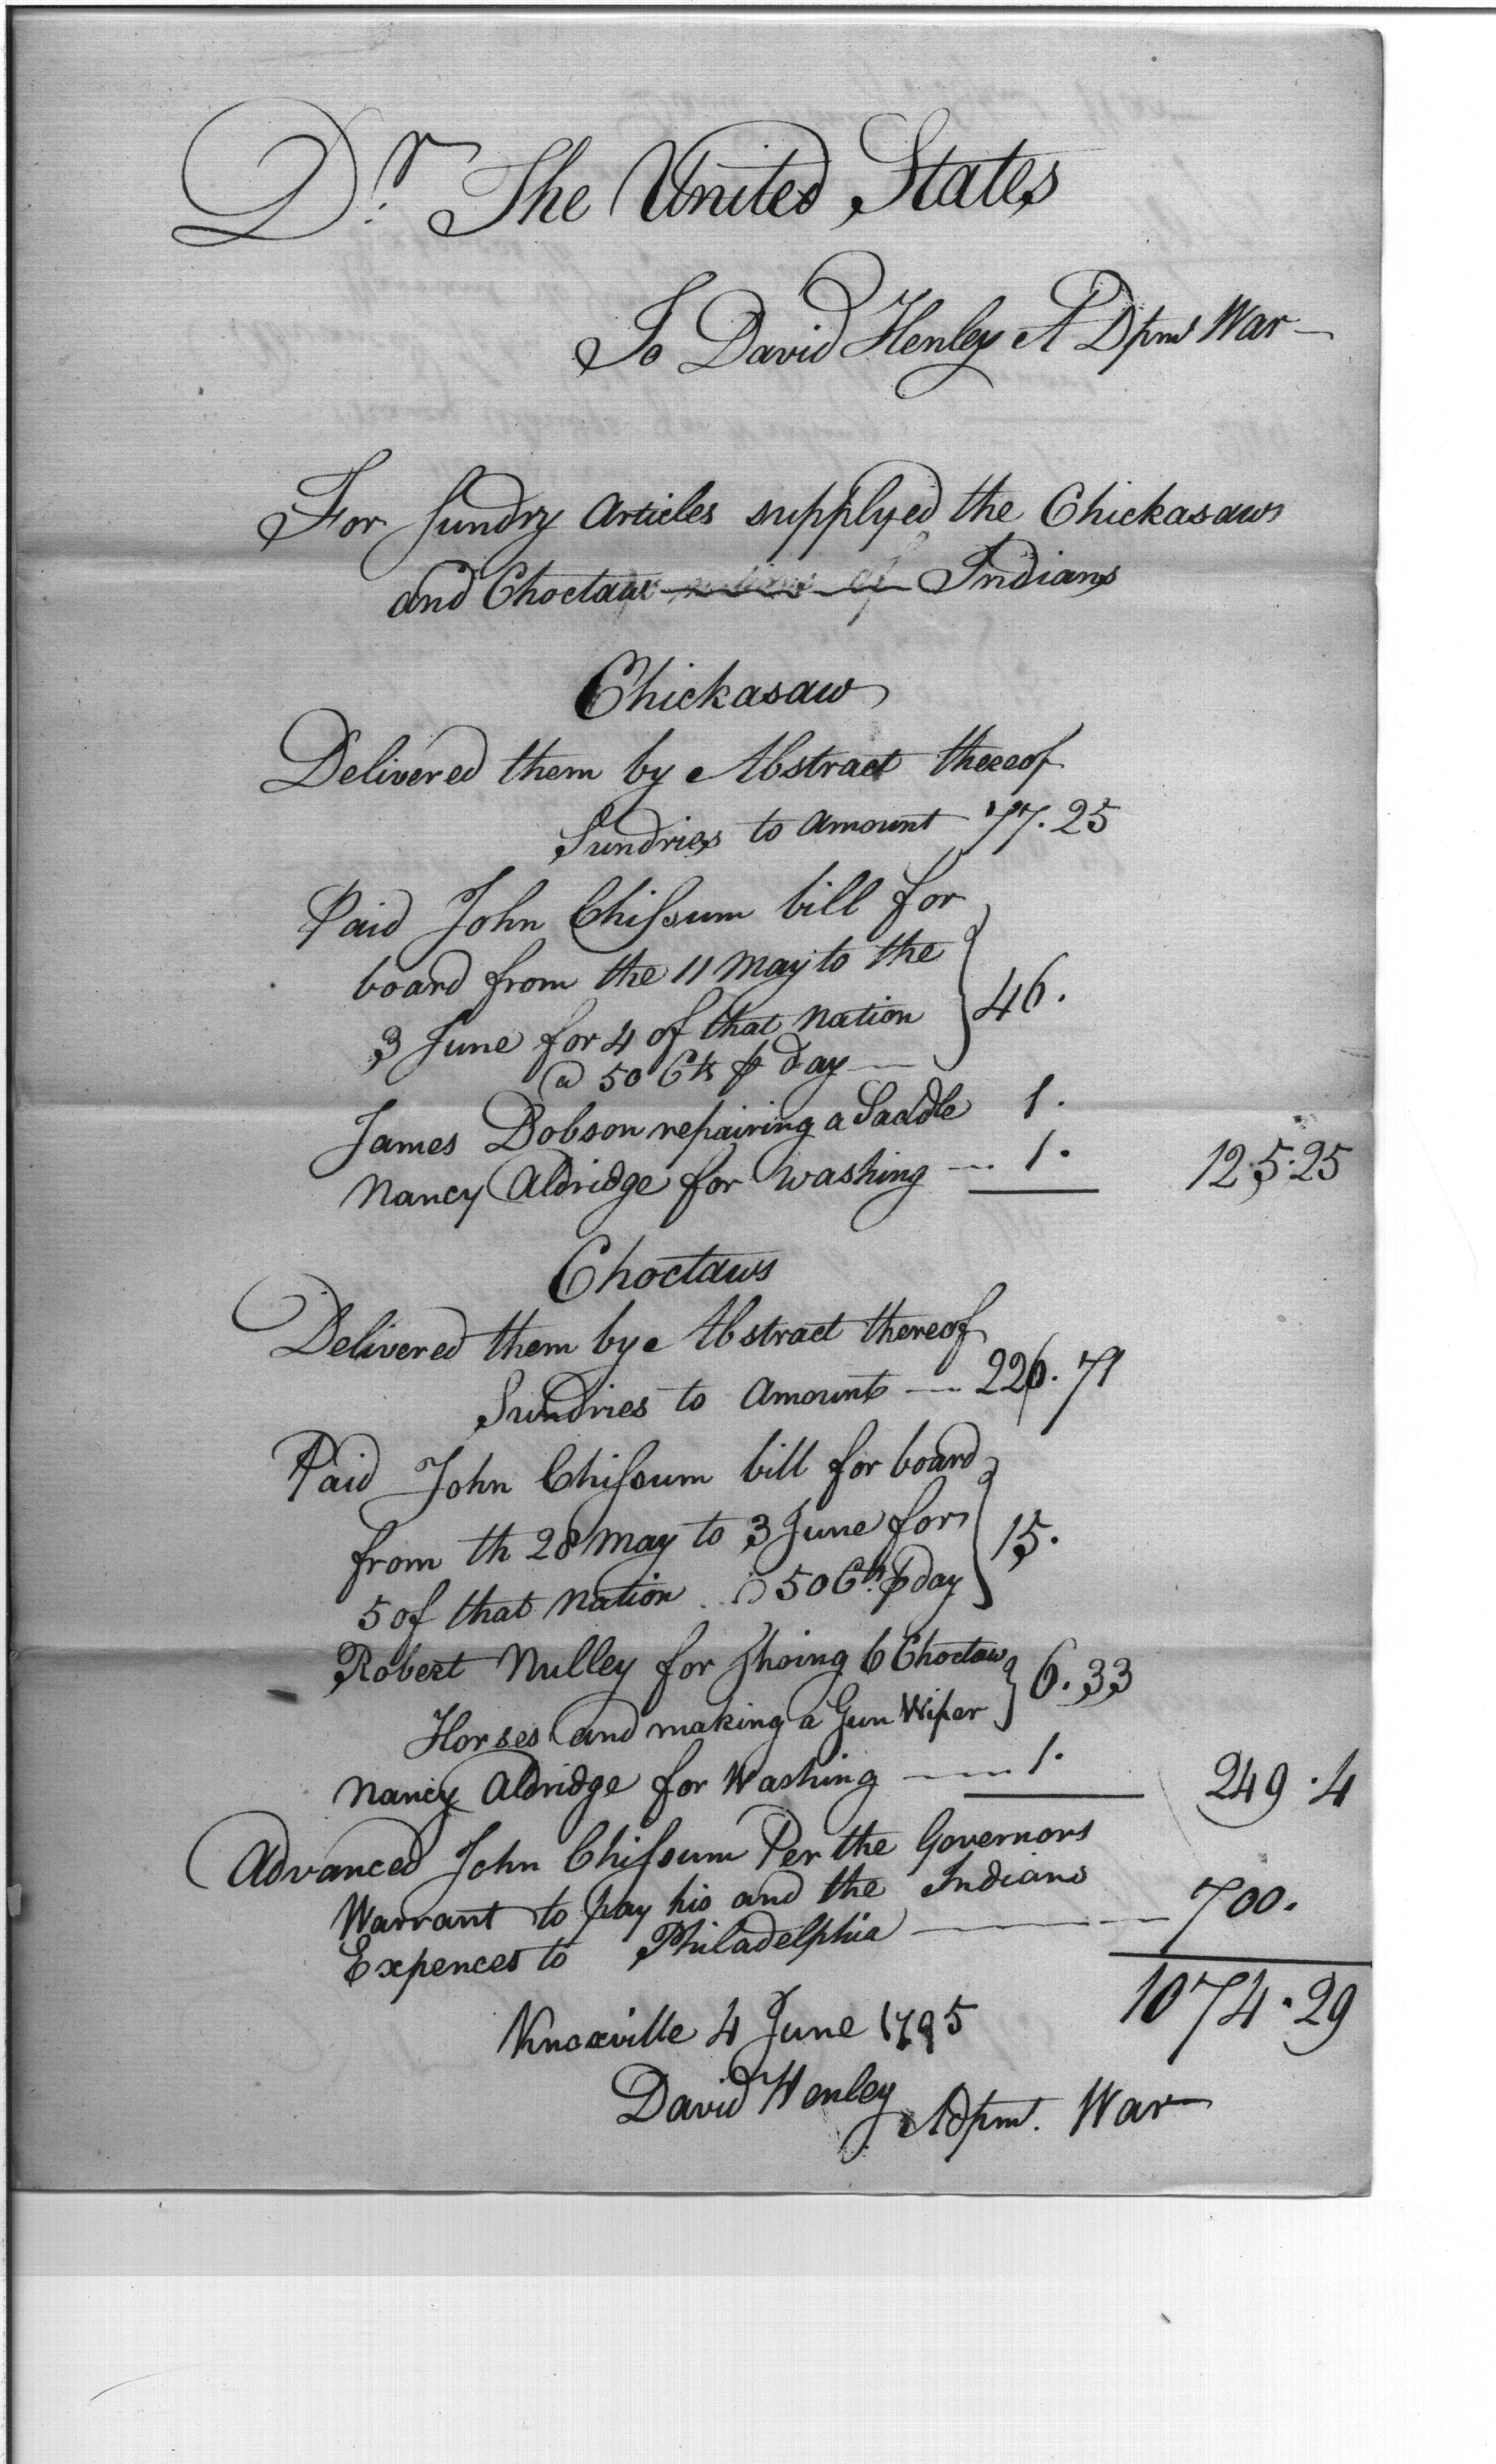 Dr. The United States
To David Henley A Dpmt War
For Sundry Articles supplyed the Chickasaws
and Choctaw nations of Indians
Chickasaw
Delivered them by Abstract thereof
Sundries to amount 77.25
Paid John Chifsum bill for
board from the 11 May to the
3 June for 4 of that Nation 46.
@ 50 Cts ⅌ day
James Dobson repairing a Saddle 1.
Nancy Aldridge for washing 1. 125.25
Choctaws
Delivered them by Abstract thereof
Sundries to amount 226.71
Paid John Chifsum bill for board
from th 28 May to 3 June for 15.
5 of that Nation @ 50 Cts. ⅌ day
Robert Nulley for Shoing 6 Choctaw
Horses and making a Gun Wiper 6.33
Nancy Aldridge for Washing 1. 249.4
Advanced John Chifsum Per the Governors
Warrant to pay his and the Indians
Expences to Philadelphia 700.
1074.29
Knoxville 4 June 1795
David Henley Adpmt. War